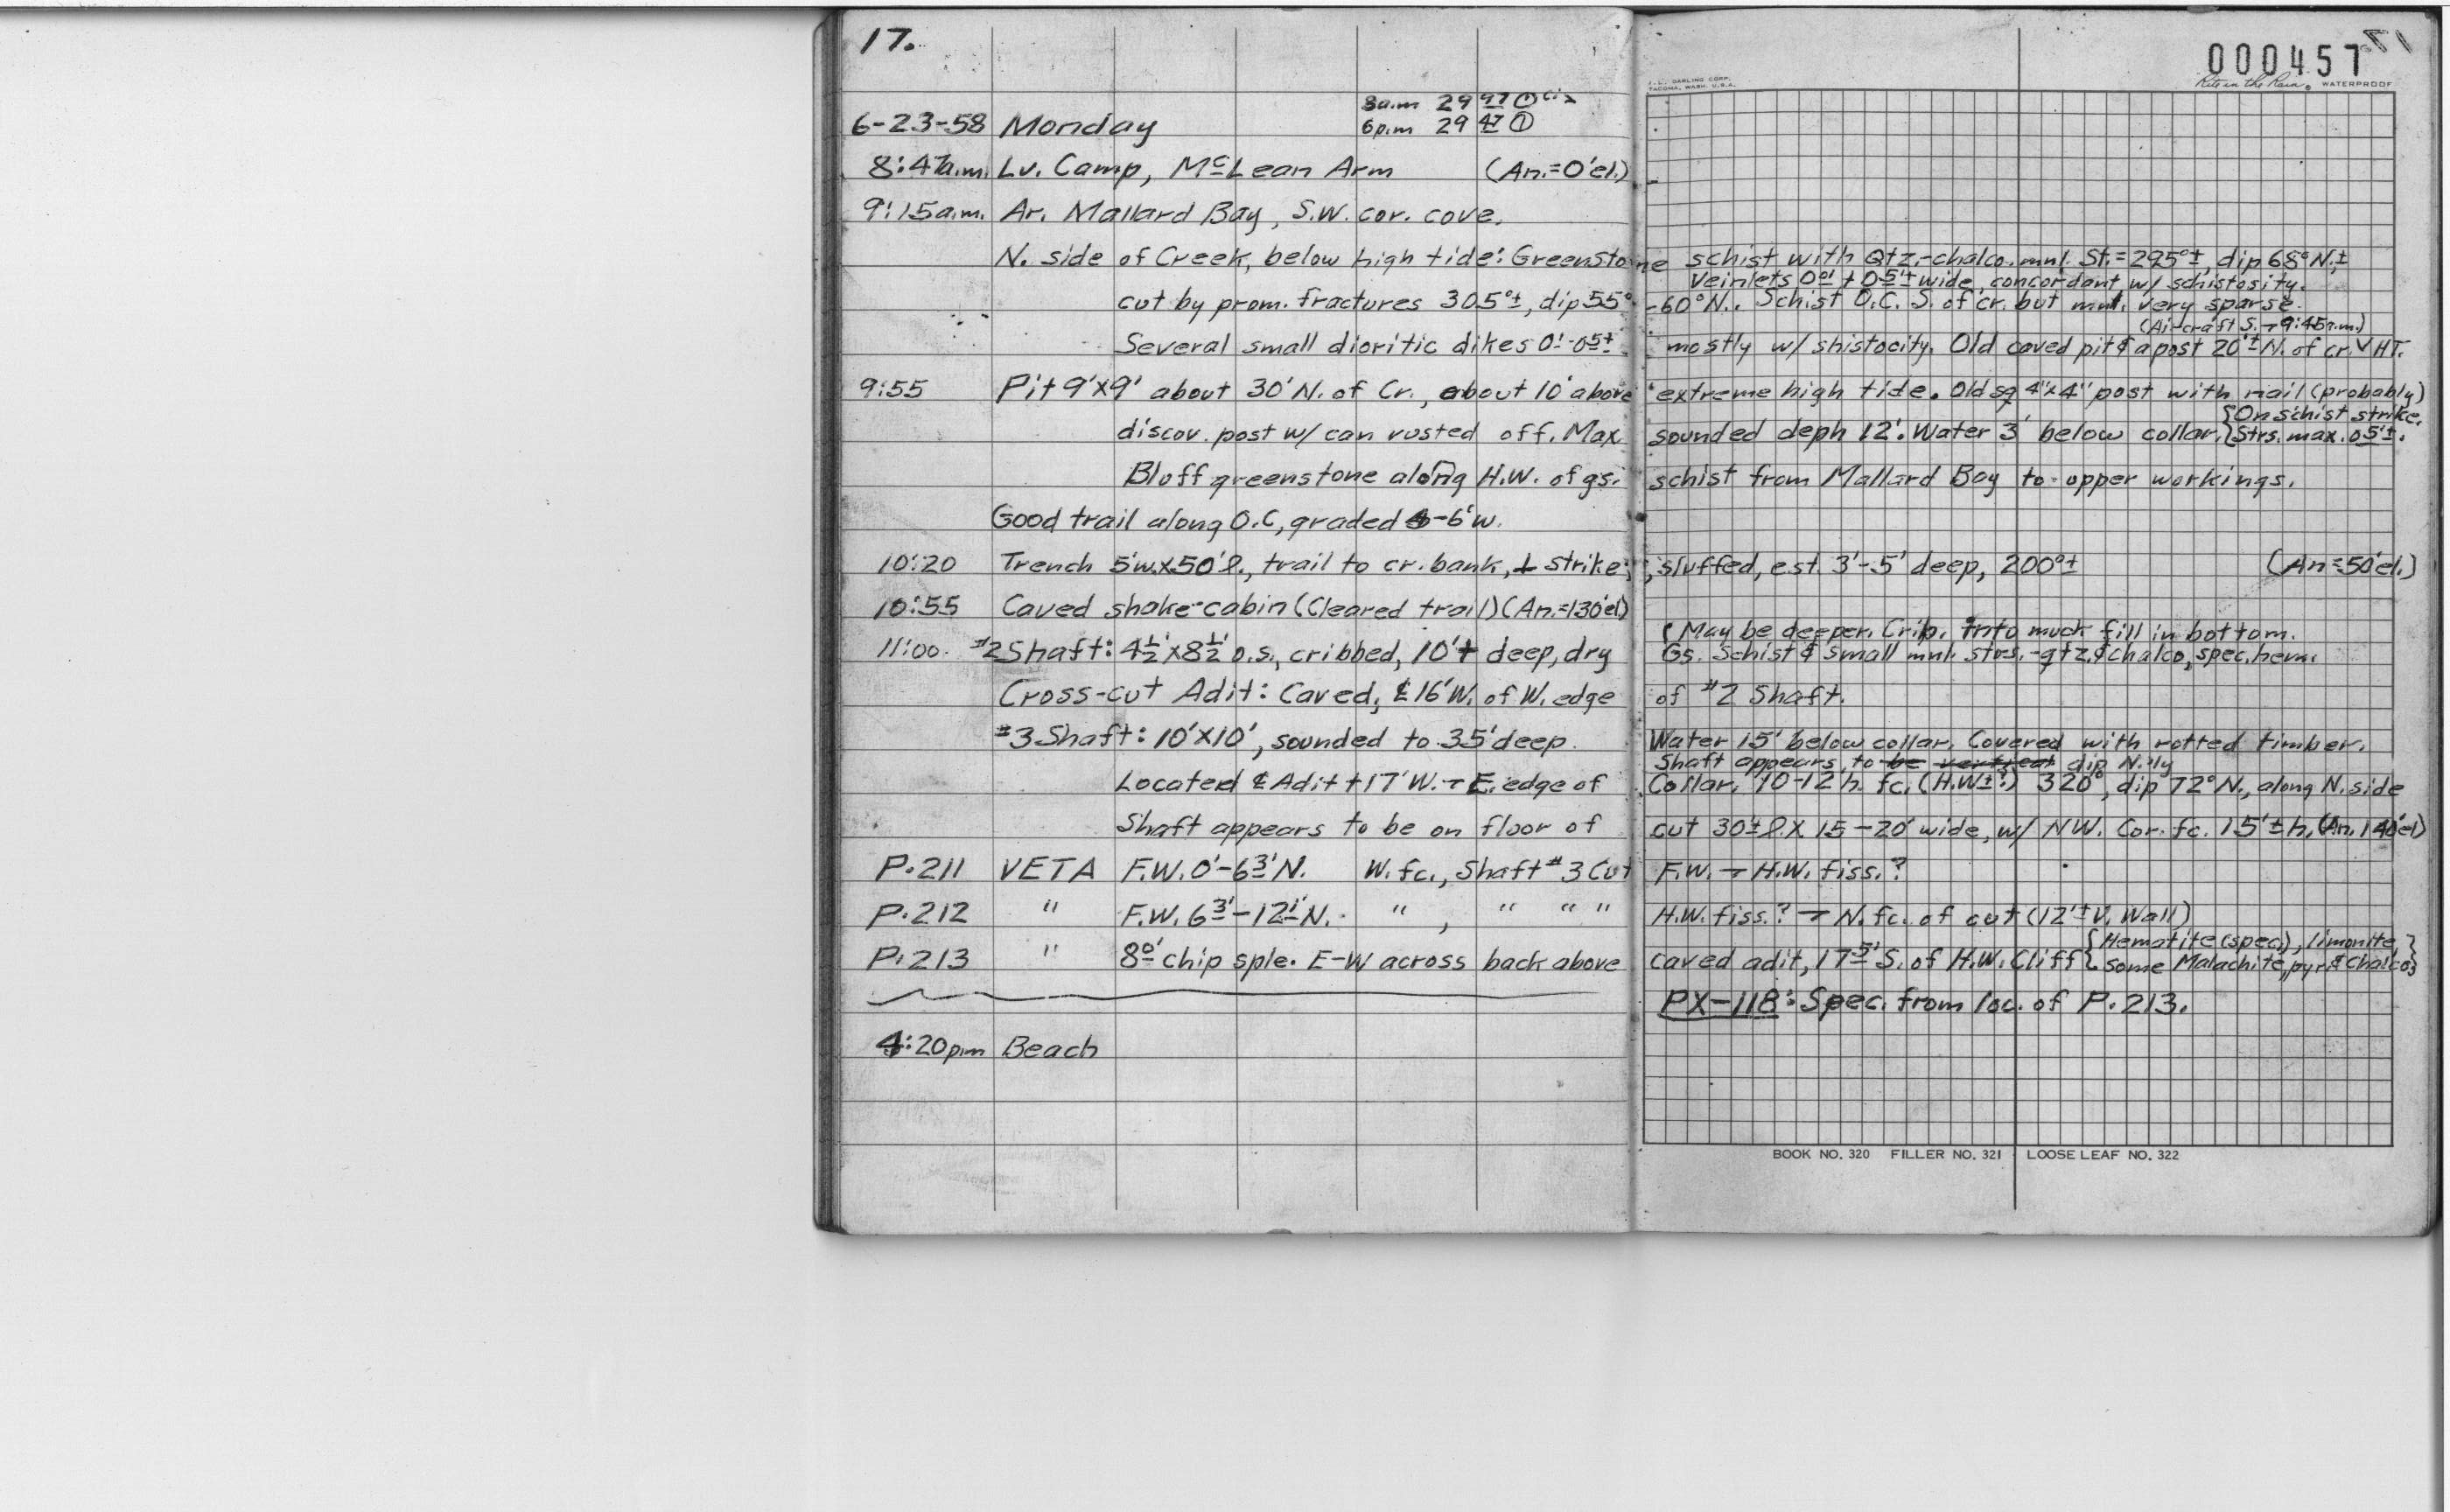 17.
000457
J. L. DARLING CORP.
TACOMA, WASH. U.S.A.
Rite in the Rain WATERPROOF
8a.m 29 97
6-23-58 Monday 6p.m 29 47
8:47a.m. Lv. Camp, McLean Arm (An.=0'el.)
9:15a.m. Ar. Mallard Bay, S.W. cor. cove.
N. side of Creek, below high tide: Greenstone schist with Qtz.-chalco. mnl. St.=295°±, dip 68°N.±
Veinlets 0 01 + 0 5'± wide, concordant w/ schistosity.
cut by prom. fractures 305°±, dip 55°-60°N.. Schist O.C. S. of cr. but mnl. very sparse.
(Aircraft S.→9:45a.m.)
Several small dioritic dikes 0'-0 5± mostly w/ shistocity. Old caved pit & a post 20'± N. of cr. V HT.
9:55 Pit 9'x9' about 30' N. of Cr., about 10' above extreme high tide. Old sq 4"x4" post with nail (probably)
{On schist strike.
discov. post w/ can rusted off. Max sounded deph 12'. Water 3' below collar. {Strs. max. 0 5'±.
Bluff greenstone along H.W. of gs. schist from Mallard Bay to upper workings.
Good trail along O.C, graded -6'w.
10:20 Trench 5'w.x50'l., trail to cr. bank, ⊥ strike; sluffed, est. 3'-5' deep, 200°± (An=50'el.)
10:55 Caved shake-cabin (Cleared trail) (An.=130'el)
(May be deeper. Crib. into much fill in bottom.
11:00. #2 Shaft: 4½'x8½' o.s., cribbed, 10'+ deep, dry Gs. Schist & small mnl. strs.-qtz. & chalco, spec. hem.
Cross-cut Adit: Caved, ℄ 16' W. of W. edge of #2 Shaft.
#3 Shaft: 10'x10', sounded to 35' deep. Water 15' below collar. Covered with rotted timber.
Shaft appears to be vertical dip N.'ly
Located ℄ Adit + 17' W. → E. edge of Collar. 10-12'h. fc. (H.W±?) 320°, dip 72°N., along N. side
Shaft appears to be on floor of cut 30'± l. x 15-20' wide, w/ NW. Cor. fc. 15'± h. (An. 140'el)
P.211 VETA F.W. 0'-6 3' N. W. fc., Shaft #3 Cut F.W. → H.W. fiss.?
P.212 " F.W. 6 3'-12 1' N. " , " " " H.W. fiss.? → N. fc. of cut (12'± V. Wall)
{Hematite (spec.), limonite,}
P.213 " 8 0' chip sple. E-W across back above caved adit, 17 5' S. of H.W. Cliff {some Malachite, pyr. & chalco}
PX-118: Spec. from loc. of P.213.
4:20pm Beach
BOOK NO. 320 FILLER NO. 321 LOOSE LEAF NO. 322